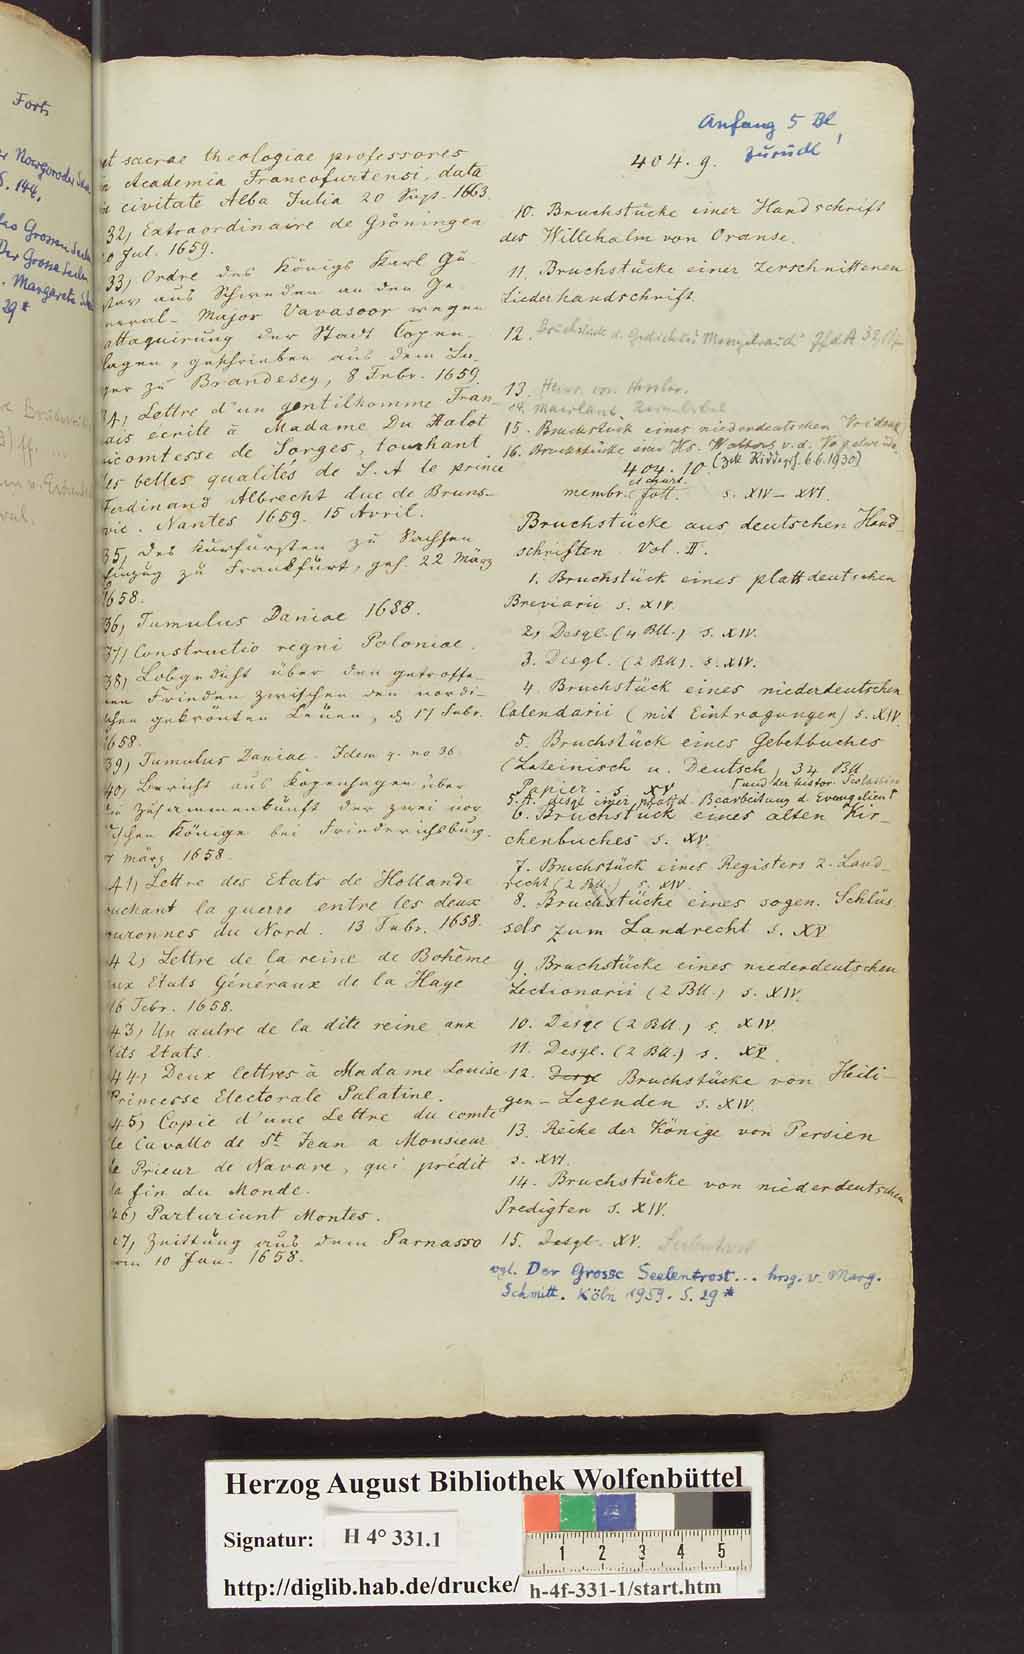 Forts
144.
Der Grosse Seelen
Margarete
29*
et sacrae theologiae professores
Academia Francofurtensi, data
civitate Alba Julia 20 Sept. 1663.
32, Extraordinaire de Gröningen
Jul. 1659.
33, Ordre des Königs Karl Gu
stav aus Schweden an den Ge
neral-Major Vavasoor wegen
attaquirung der Stadt Copen
hagen, geschrieben aus dem La-
ger zu Brandesey, 8 Febr. 1659.
34, Lettre d'un gentilhomme Fran-
cais écrite à Madame Du Halot
vicomtesse de Sorges, touchant
les belles qualités de S. A. le prince
Ferdinand Albrecht duc de Bruns-
vic. Nantes 1659. 15 Avril.
35, Des Kurfürsten zu Sachsen
Einzug zu Frankfurt, gesch. 22 März
1658.
36, Tumulus Daniae 1688.
37, Constructio regni Poloniae.
38, Lobgedicht über den getroffe-
nen Frieden zwischen den nordi-
schen gekrönten Leuen, 17 Febr.
1658.
39, Tumulus Daniae. Idem q. no 36.
40, Bericht aus Kopenhagen über
die Zusammenkunft der zwei nor
dischen Könige bei Friederichsburg.
7 März 1658.
41, Lettre des Etats de Hollande
touchant la guerre entre les deux
couronnes du Nord. 13 Febr. 1658.
42, Lettre de la reine de Bohême
aux Etats Généraux de la Haye
16 Febr. 1658.
43, Un autre de la dite reine aux
dits Etats.
44, Deux lettres à Madame Louise
Princesse Electorale Palatine.
45, Copie d'une Lettre du comte
de Cavallo de St. Jean a Monsieur
le Prieur de Navare, qui prédit
la fin du Monde.
46, Parturiunt Montes.
47, Zeittung aus dem Parnasso
vom 10 Jan. 1658.
Anfang 5 Bl
zurück!
404.9.
10. Bruchstücke einer Handschrift
des Willehalm von Oranse.
11. Bruchstücke einer zerschnittenen
Liederhandschrift.
12. Bruchstück d. Gedichts: ZfdA
13. Heinr. von Hesler.
14. Maerlant.
15. Bruchstück eines niederdeutschen Vridank
16. Bruchstücke einer Hs. v. d.
404.10.
et chart.
membr. foll. s. XIV–XVI.
Bruchstücke aus deutschen Hand
schriften Vol. II.
1. Bruchstück eines plattdeutschen
Breviarii s. XIV.
2, Desgl. (4 Bll.) s. XIV.
3. Desgl. (2 Bll). s. XIV.
4. Bruchstück eines niederdeutschen
Calendarii (mit Eintragungen) s. XIV.
5. Bruchstück eines Gebetbuches
(Lateinisch u. Deutsch, 34 Bll.
Papier. s. XV
und der histor. Scolastica
5. A. desgl einer plattd. Bearbeitung d. Evangelien
6. Bruchstück eines alten Kir-
chenbuches s. XV.
7. Bruchstück eines Registers z. Land-
recht (2 Bll.) s. XIV.
8. Bruchstücke eines sogen. Schlüs
sels zum Landrecht s. XV
9. Bruchstücke eines niederdeutschen
Lectionarii (2 Bll.) s. XIV.
10. Desgl (2 Bll.) s. XIV.
11. Desgl. (2 Bll.) s. XV.
12. Desgl Bruchstücke von Heili-
gen-Legenden s. XIV.
13. Reihe der Könige von Persien
s. XVI.
14. Bruchstücke von niederdeutschen
Predigten s. XIV.
15. Desgl. XV. Seelentrost
vgl. Der Grosse Seelentrost... hrsg. v. Marg.
Schmitt. Köln 1959. S. 29*
Herzog August Bibliothek Wolfenbüttel
Signatur: H 4° 331.1
1 2 3 4 5
http://diglib.hab.de/drucke/ h-4f-331-1/start.htm